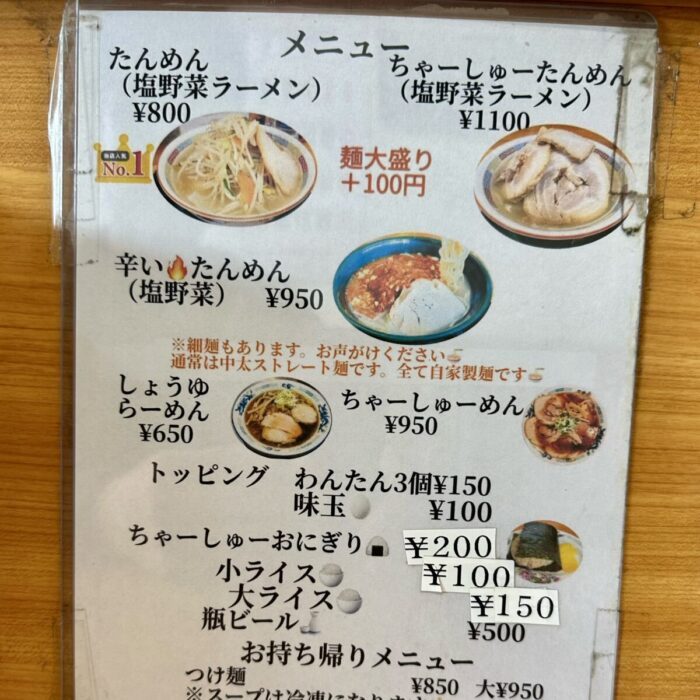 メニュー
たんめん
（塩野菜ラーメン）
¥800
ちゃーしゅーたんめん
（塩野菜ラーメン）
¥1100
No.1
麺大盛り
＋100円
辛い🔥たんめん
（塩野菜） ¥950
※細麺もあります。お声がけください🍜
通常は中太ストレート麺です。全て自家製麺です🍜
しょうゆ
らーめん
¥650
ちゃーしゅーめん
¥950
トッピング わんたん3個¥150
味玉🥚 ¥100
ちゃーしゅーおにぎり🍙 ¥200
小ライス🍚 ¥100
大ライス🍚 ¥150
瓶ビール🍶 ¥500
お持ち帰りメニュー
つけ麺 ¥850 大¥950
※スープは冷凍になります